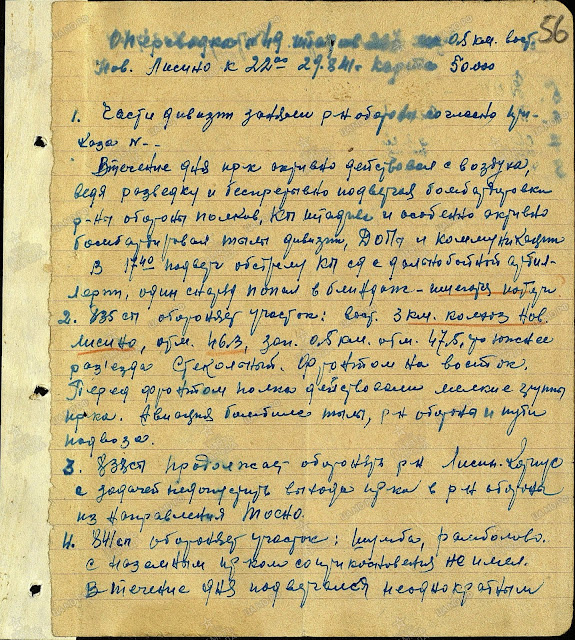 56
Оперсводка № 49 штадив 237 0,5 км. вост.
Нов. Лисино к 22 00 29.8.41г. карта 50.000
1. Части дивизии заняли р-н обороны согласно при-
каза № --
В течение дня пр-к активно действовал с воздуха,
ведя разведку и беспрерывно подвергая бомбардировки
р-ны обороны полков, КП штадива и особенно активно
бомбардировал тылы дивизии, ДОПы и коммуникации
В 17 40 подверг обстрелу КП сд с дальнобойной артил-
лерии, один снаряд попал в блиндаж - имеются потери
2. 835 сп обороняет участок: вост. 3 км. колхоз Нов.
Лисино, отм. 46.3, зап. 0,5 км. отм. 47.5, южнее
раз'езда Стекольный. Фронтом на восток.
Перед фронтом полка действовали мелкие группы
пр-ка. Авиация бомбила тылы, р-н обороны и пути
подвоза.
3. 838сп продолжает оборонять р-н Лисин. Корпус
с задачей недопустить выхода пр-ка в р-н обороны
из направления Тосно.
4. 841сп обороняет участок: Шумба, Рамболово.
С наземным пр-ком соприкосновения не имел.
В течение дня подвергался неоднократным